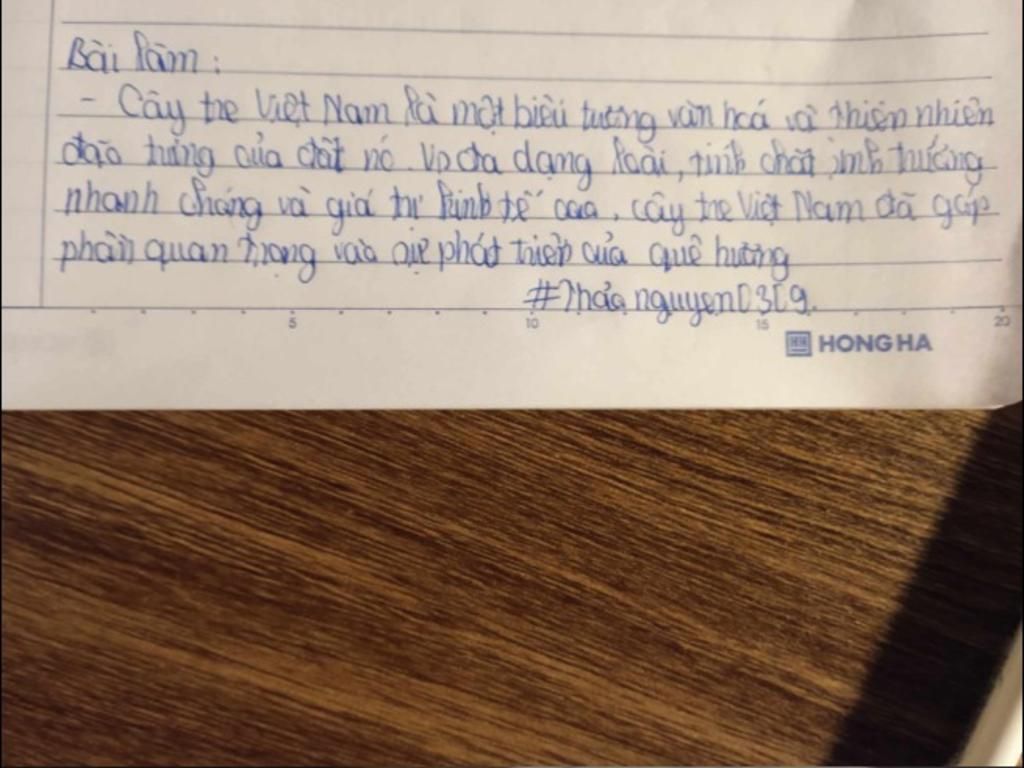 Bài làm:
- Cây tre Việt Nam là một biểu tượng văn hoá và thiên nhiên
đặc trưng của đất nó. Vs đa dạng loài, tính chất sinh trưởng
nhanh chóng và giá trị kinh tế cao, cây tre Việt Nam đã góp
phần quan trọng vào sự phát triển của quê hương
#Thảo nguyen0309.
5 10 15 20
HONG HA